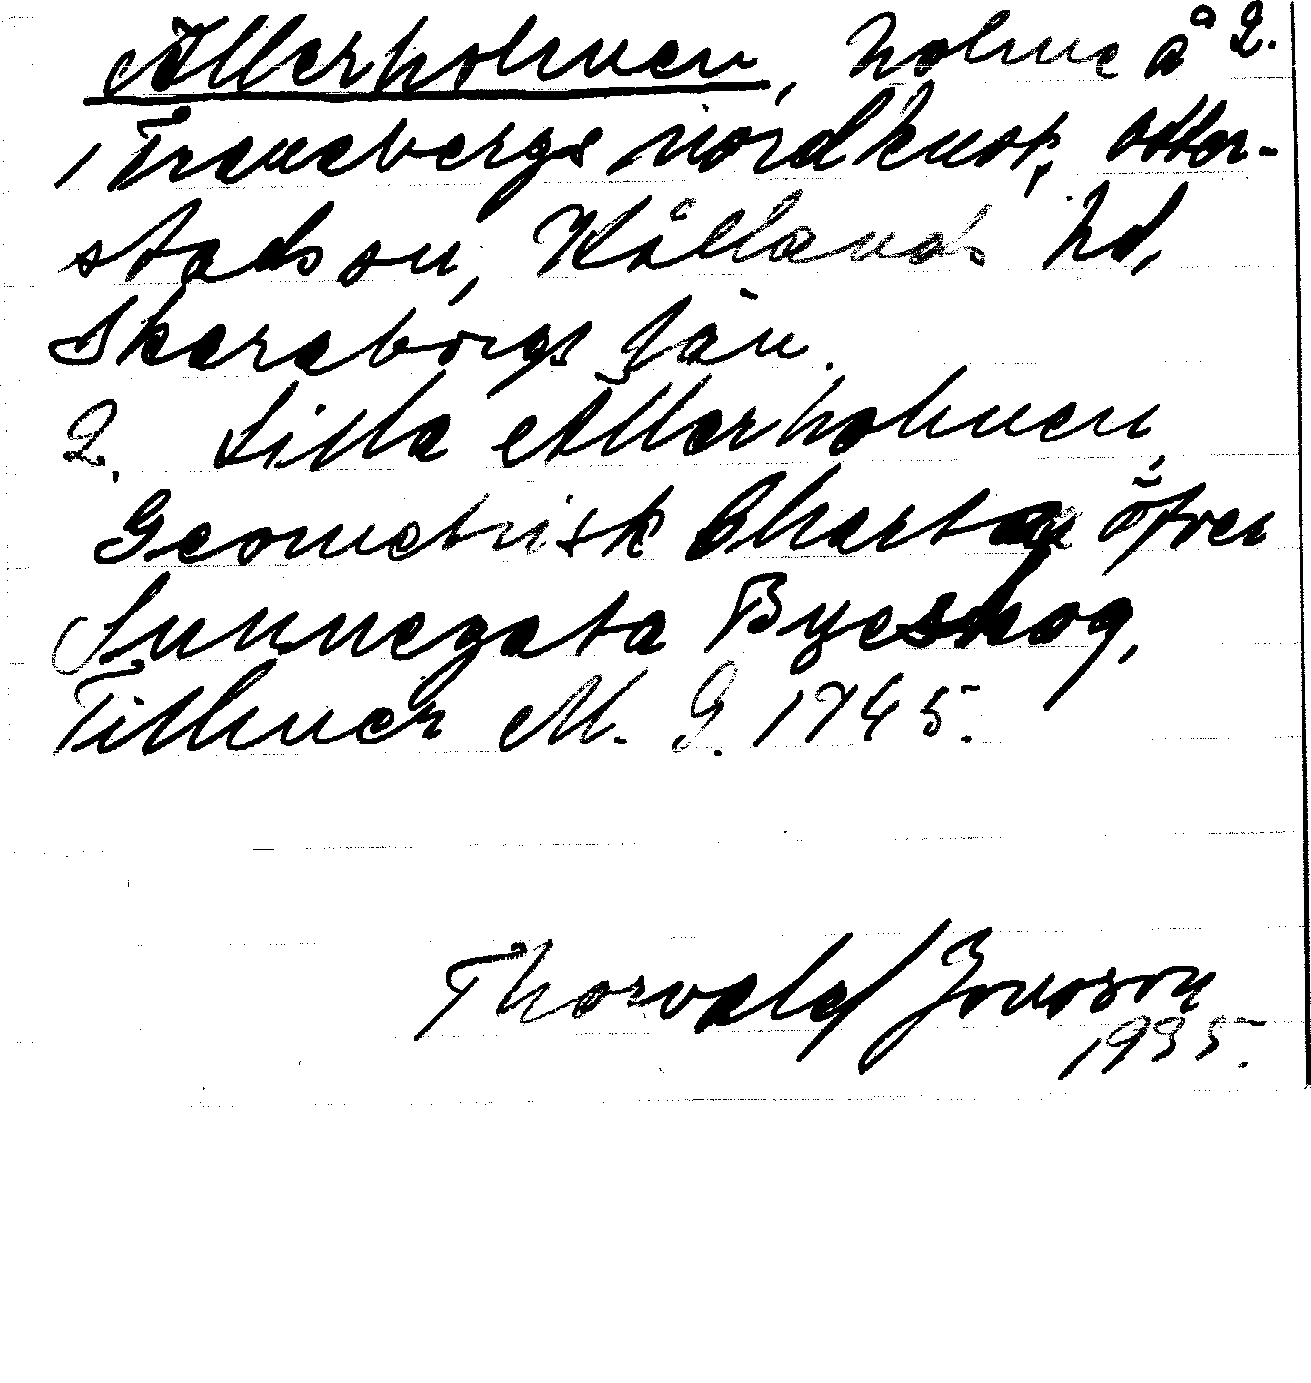 Allerholmen, holme å 2.
i Traneberga nordkust, Otter-
stads sn, Kållands hd,
Skaraborgs län.
2. Lilla Allerholmen,
Geometrisk Chartan öfver
Sunnegata Byeskog,
Tillner M. G. 1745.
Thorvald Jonsson
1935.